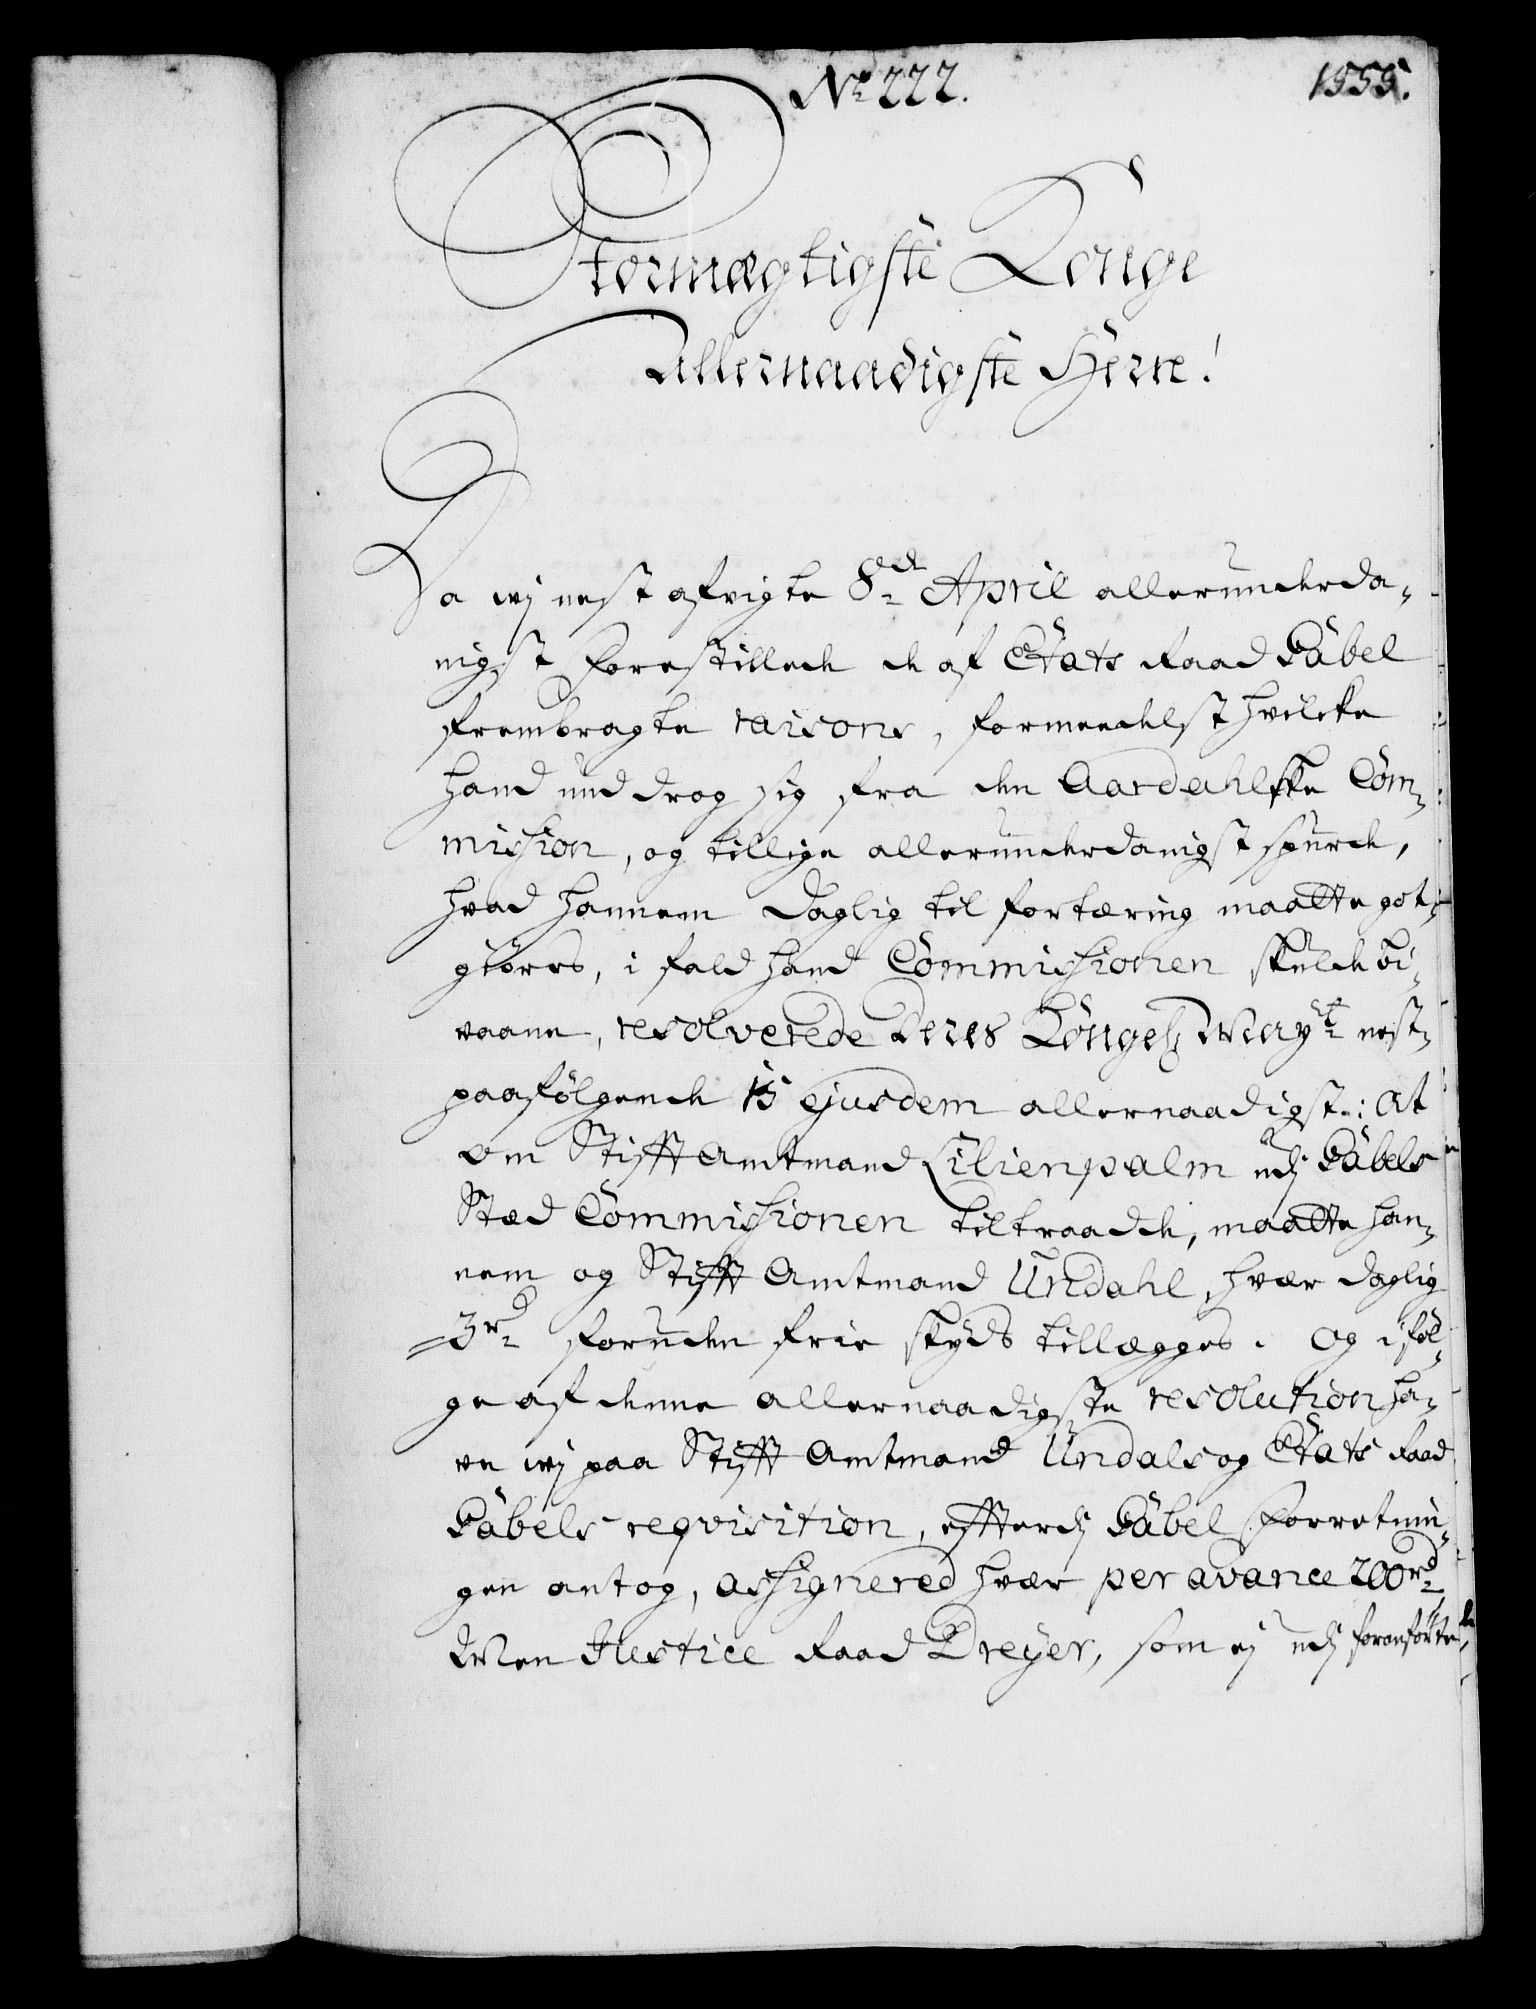 No 222.
1555.
Stormægtigste Konge
Allernaadigste Herre!
Da wj nest afvigte 8de April allerunderda-
nigst forestillede de af Etats Raad Gäbel
frembragte raisons, formeedelst hvilcke
hand unddrog sig fra den Aardahlske Com-
mission, og tillige allerunderdanigst spurde,
hvad hannem daglig til fortæring maatte got-
giøres, i fald hand Commissionen skulde bi-
vaane, resolverede Deres Kongel: May:t nest-
paafølgende 15 ejusdem allernaadigst: at
om Stifft Amtmand Lilienpalm udj Gäbels
Stæd Commissionen tiltraadde, maatte han-
nem og Stifft Amtmand Undahl, hver daglig
3 rd foruden frie skyds tillægges. Og i føl-
ge af denne allernaadigste resolution ha-
ve wj paa Stifft Amtmand Undals og Etats Raad
Gäbels reqvisition, efterdj Gäbel Forretnin-
gen antog, assignered hver per avance 200 rd
Men Justice Raad Dreyer, som ej udj foranførte